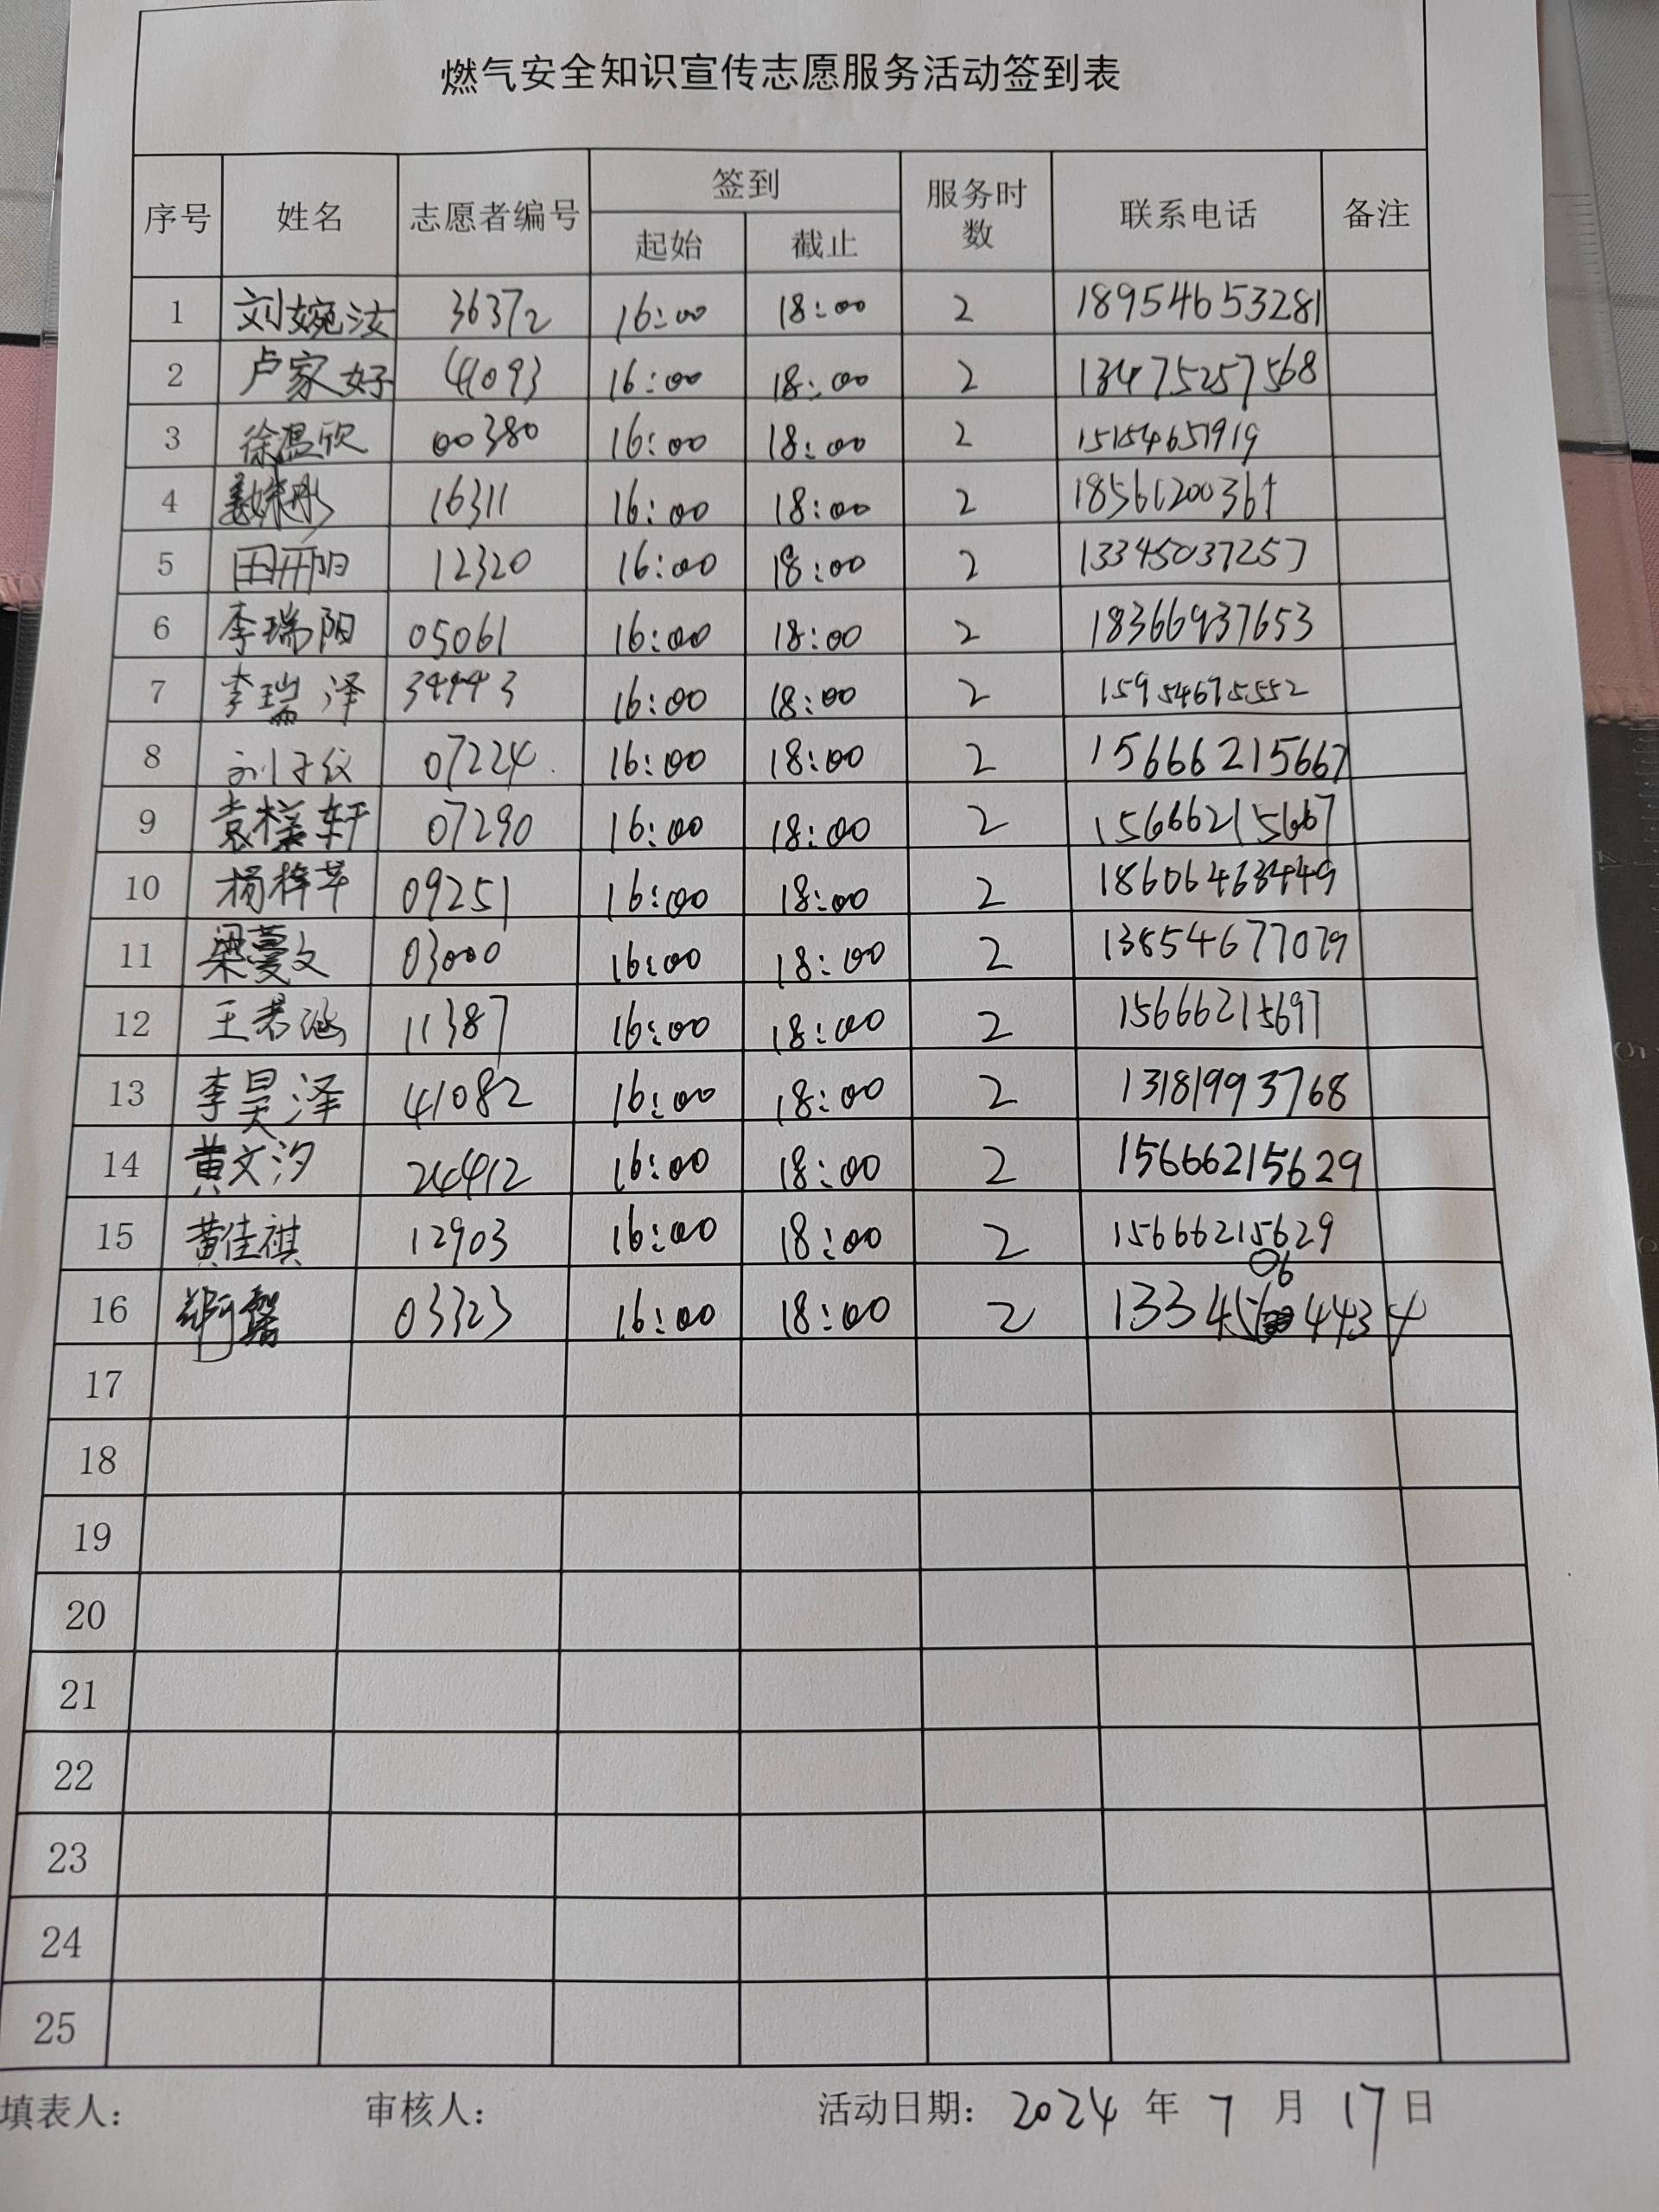 燃气安全知识宣传志愿服务活动签到表
序号 姓名 志愿者编号 签到 服务时数 联系电话 备注
起始 截止
1 刘婉汝 36372 16:00 18:00 2 18954653281
2 卢家好 41093 16:00 18:00 2 13475257568
3 徐温欣 00380 16:00 18:00 2 15154651919
4 16311 16:00 18:00 2
5 田开阳 12320 16:00 18:00 2 13345037257
6 李瑞阳 05061 16:00 18:00 2 18366937653
7 李瑞泽 34443 16:00 18:00 2 15954675552
8 刘子纹 07224 16:00 18:00 2 15666215667
9 袁样轩 07290 16:00 18:00 2 15666215667
10 杨梓苹 09251 16:00 18:00 2 18606463449
11 梁蔓文 03000 16:00 18:00 2 13854677079
12 王君涵 11387 16:00 18:00 2 15666215697
13 李昊泽 41082 16:00 18:00 2 13181993768
14 黄文汐 24412 16:00 18:00 2 15666215629
15 黄佳祺 12903 16:00 18:00 2 15666215629
16 03323 16:00 18:00 2
17
18
19
20
21
22
23
24
25
填表人： 审核人： 活动日期： 2024 年 7 月 17 日